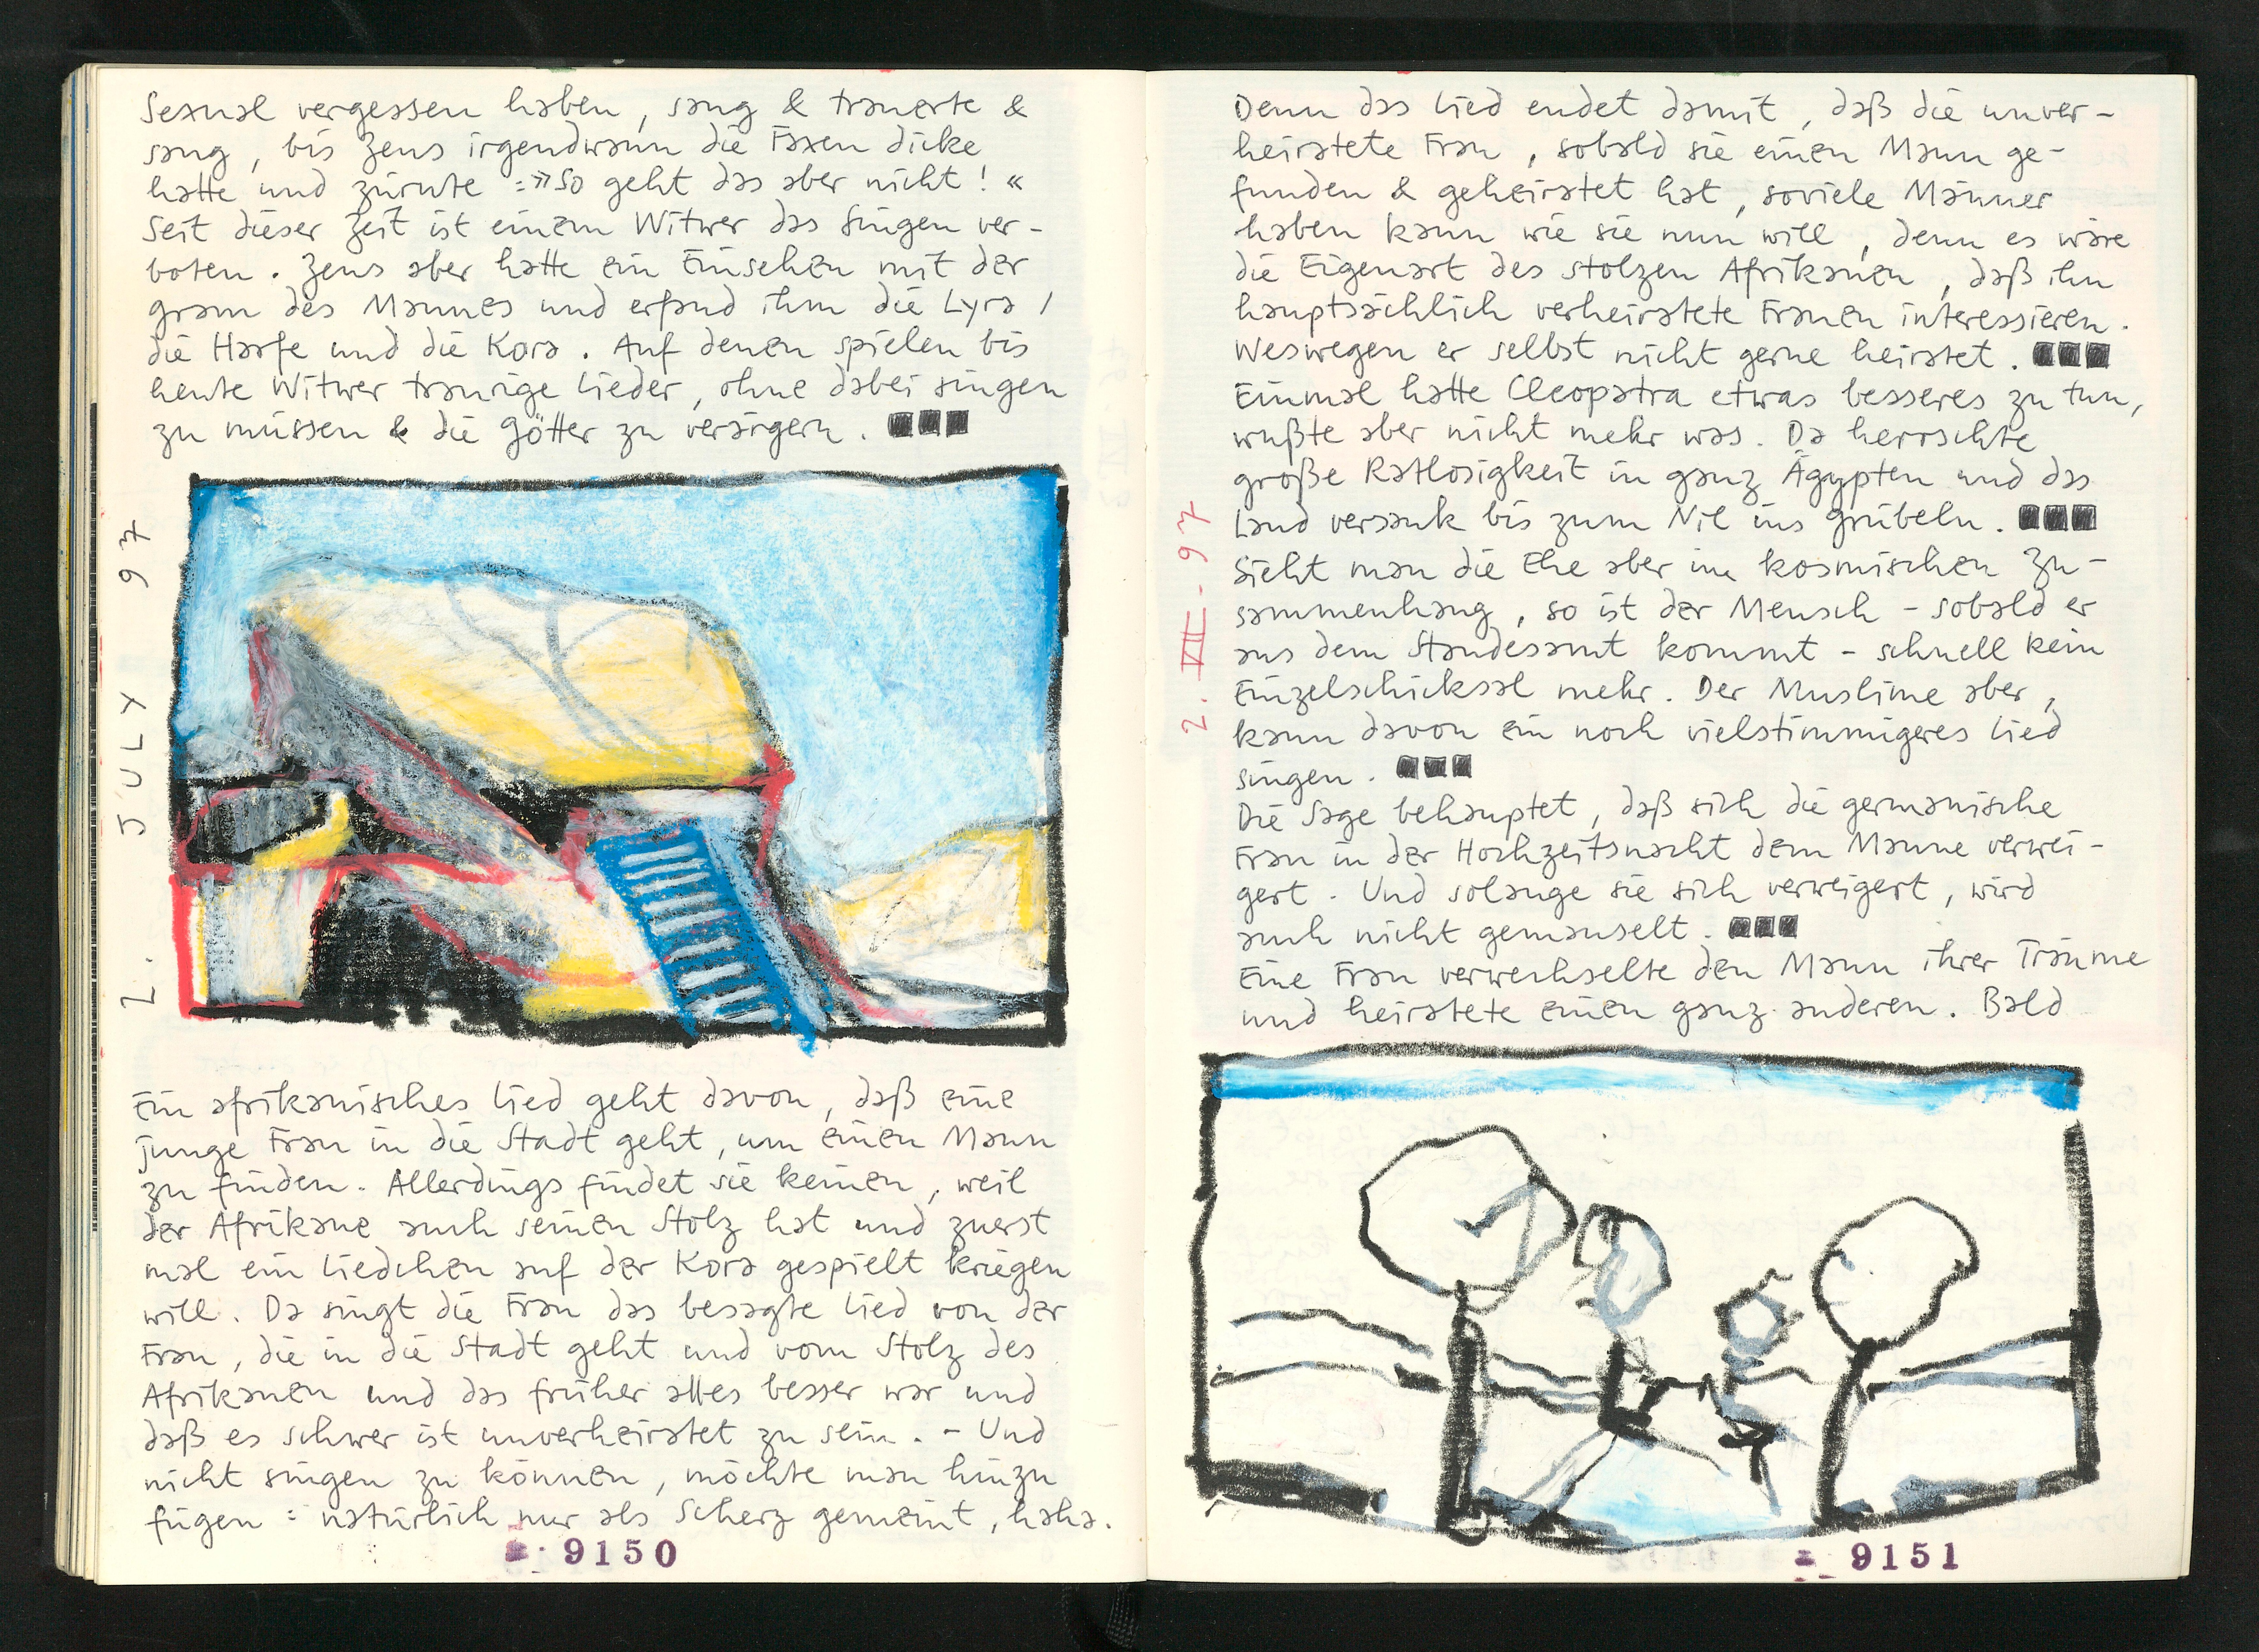 Sexual vergessen haben, sang & trauerte &
sang, bis Zeus irgendwann die Faxen dicke
hatte und zürnte :»So geht das aber nicht!«
Seit dieser Zeit ist einem Witwer das Singen ver-
boten. Zeus aber hatte ein Einsehen mit der
gram des Mannes und erfand ihm die Lyra /
die Harfe und die Kora. Auf denen spielen bis
heute Witwer traurige Lieder, ohne dabei singen
zu müssen & die Götter zu verärgern.
2. JULY 97
Ein afrikanisches Lied geht davon, daß eine
junge Frau in die Stadt geht, um einen Mann
zu finden. Allerdings findet sie keinen, weil
der Afrikane auch seinen Stolz hat und zuerst
mal ein Liedchen auf der Kora gespielt kriegen
will. Da singt die Frau das besagte Lied von der
Frau, die in die Stadt geht und vom Stolz des
Afrikanen und das früher alles besser war und
daß es schwer ist unverheiratet zu sein. - Und
nicht singen zu können, möchte man hinzu
fügen : natürlich nur als Scherz gemeint, haha.
9150
Denn das Lied endet damit, daß die unver-
heiratete Frau, sobald sie einen Mann ge-
funden & geheiratet hat, soviele Männer
haben kann wie sie nun will, denn es wäre
die Eigenart des stolzen Afrikanen, daß ihn
hauptsächlich verheiratete Frauen interessieren.
Weswegen er selbst nicht gerne heiratet.
Einmal hatte Cleopatra etwas besseres zu tun,
wußte aber nicht mehr was. Da herrschte
große Ratlosigkeit in ganz Ägypten und das
Land versank bis zum Nil ins Grübeln.
2. VII. 97
Sieht man die Ehe aber im kosmischen Zu-
sammenhang, so ist der Mensch - sobald er
aus dem Standesamt kommt - schnell kein
Einzelschicksal mehr. Der Muslime aber,
kann davon ein noch vielstimmigeres Lied
singen.
Die Sage behauptet, daß sich die germanische
Frau in der Hochzeitsnacht dem Manne verwei-
gert. Und solange sie sich verweigert, wird
auch nicht gemauselt.
Eine Frau verwechselte den Mann ihrer Träume
und heiratete einen ganz anderen. Bald
9151